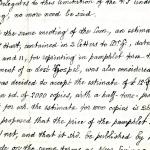 Delegates to this Convention of the
, no more need be said.
the same meeting of the Com, an estima
Hart, contained in 2 letters to D.P., date
and 11, for reprinting in pamphlet form t
ment of a Lost Gospel, was also considered
was decided to accept the estimate of £
an ed. of 7000 copies, with a half-tone, the
for wh. the estimate for 1000 copies is £6
proposed that the price of the pamphlet
net; and that it shd. be published by
on the same terms as